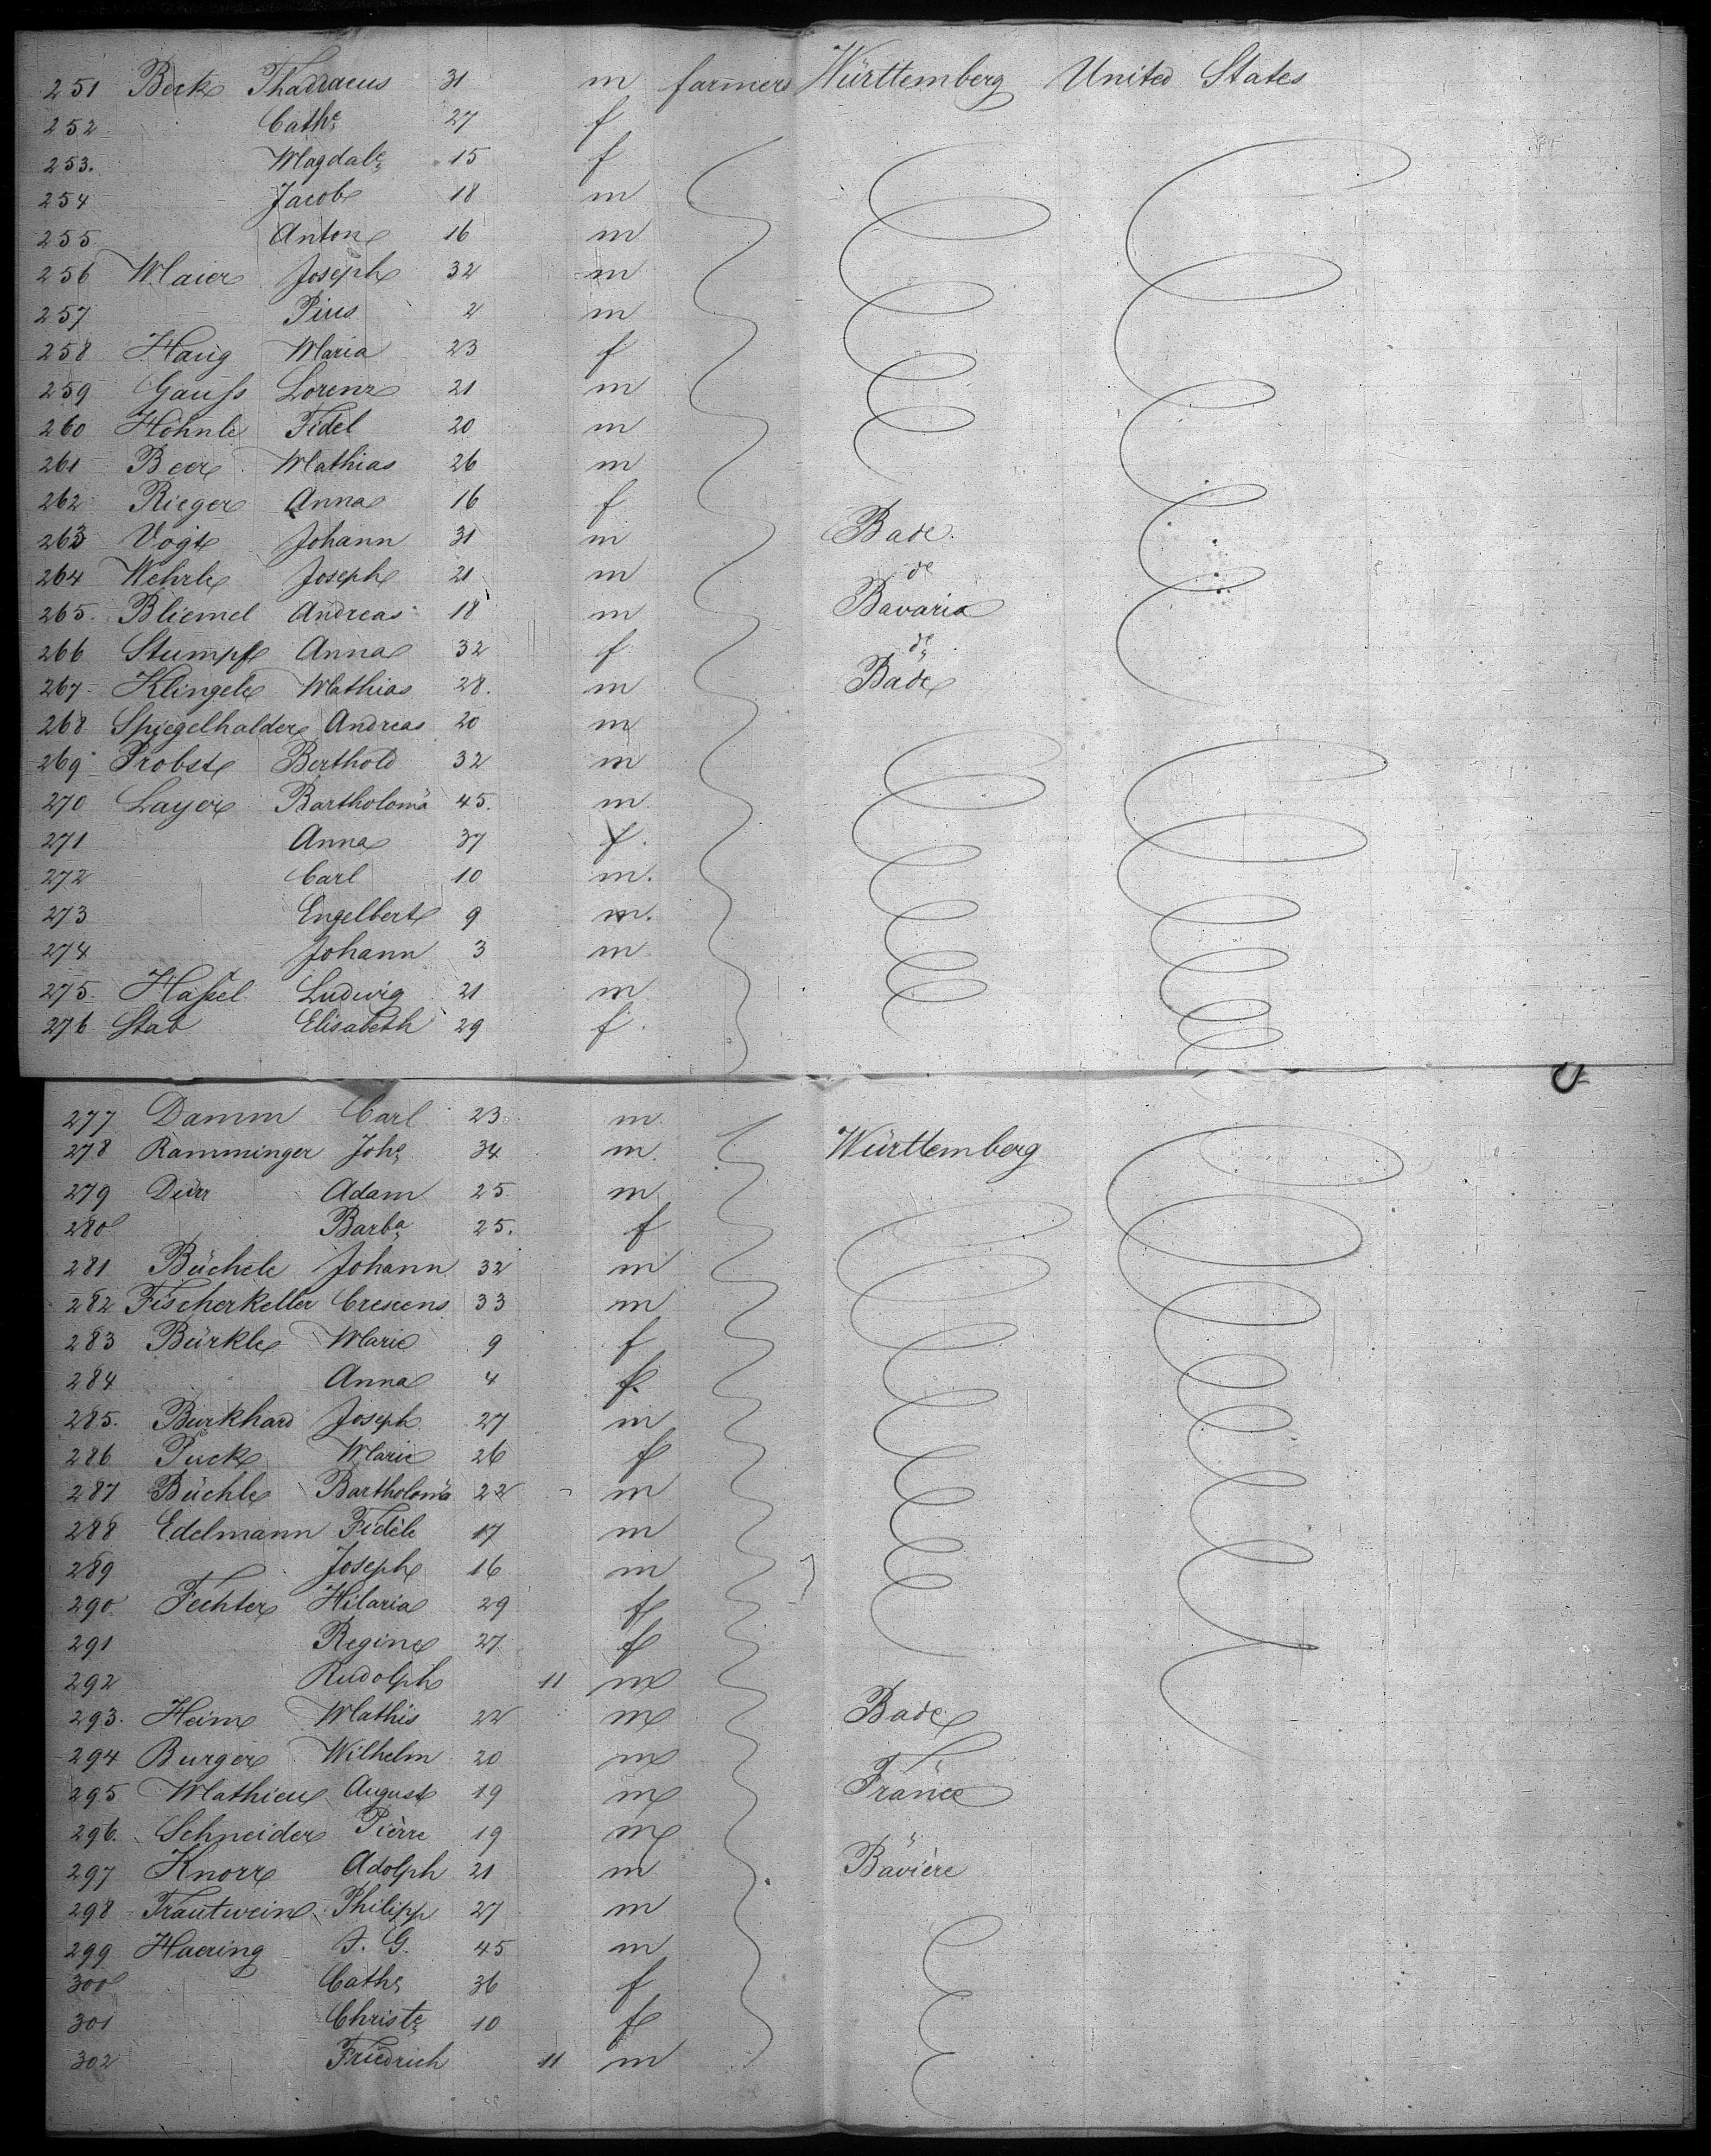 251 Beck Thadraeus 31 m farmers Württemberg United States
252 Cathe 27 f
253. Magdale 15 f
254 Jacob 18 m
255 Anton 16 m
256 Maier Joseph 32 m
257 Pius 2 m
258 Haug Maria 23 f
259 Gauß Lorenz 21 m
260 Höhnle Fidel 20 m
261 Beer Mathias 26 m
262 Rieger Anna 16 f
263 Vogt Johann 31 m Bade.
264 Wehrle Joseph 21 m do
265. Bliemel Andreas 18 m Bavaria
266 Stumpf Anna 32 f do
267 Klingele Mathias 28. m Bade
268 Spiegelhalder Andreas 20 m
269 Probst Berthold 32 m
270 Layer Bartholomä 45. m
271 Anna 37 f.
272 Carl 10 m.
273 Engelbert 9 m.
274 Johann 3 m
275 Haßel Ludwig 21 m
276 Stab Elisabeth 29 f.
277 Damm Carl 23 m
278 Ramminger Johs 34 m. Württemberg
279 Dürr Adam 25 m
280 Barba 25. f
281 Büchele Johann 32 m
282 Fischerkeller Crescens 33 m
283 Bürkle Marie 9 f
284 Anna 4 f.
285. Burkhard Joseph 27 m
286 Puck Marie 26 f
287 Büchle Bartholomä 22 m
288 Edelmann Fidèle 17 m
289 Joseph 16 m
290 Fechter Hilaria 29 f
291 Regine 27 f
292 Rudolph 11 m
293. Heim Mathis 22 m Bade
294 Burger Wilhelm 20 m
295 Mathieu August 19 m France
296. Schneider Pierre 19 m
297 Knorr Adolph 21 m Bavière
298 Trautwein Philipp 27 m
299 Haering J. G. 45 m
300 Cathe 36 f
301 Christe 10 f
302 Friedrich 11 m